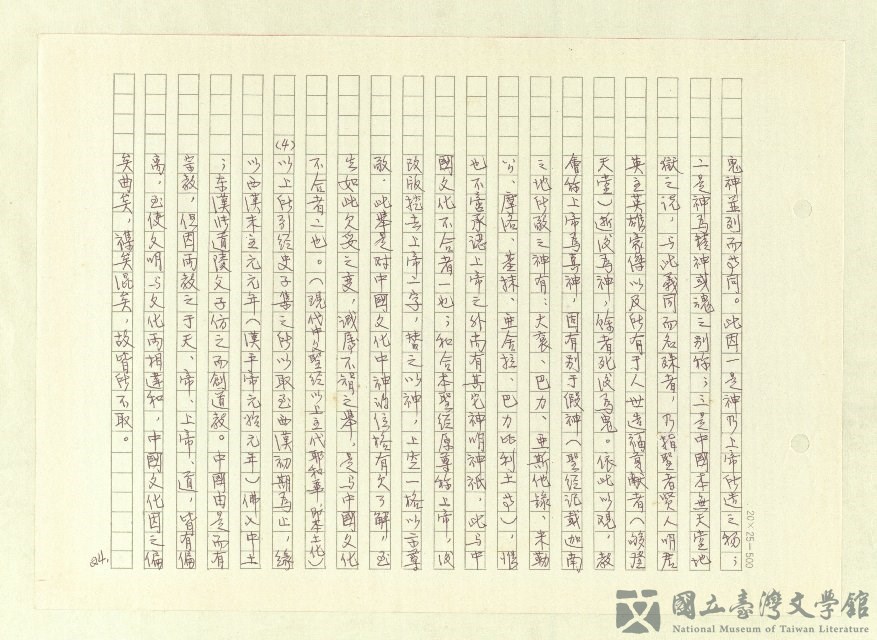 鬼神並列而等同。此因一是神乃上帝所造之物；
二是神為精神或魂之別称；三是中國本無天堂地
獄之説，与此義同而名殊者，乃指聖者賢人明君
英主英雄豪傑以及所有于人世造福貢献者（够登
天堂）逝後為神，餘者死後為鬼。依此以观，教
會称上帝為真神，固有别于假神（聖经記載迦南
之地所敬之神有：大袞、巴力、亜斯他錄、米勒
公、摩洛、基抹、亜舍拉、巴力比利土等），惟
也不啻承認上帝之外尚有其它神明神祇，此与中
國文化不合者一也；和合本聖经原尊称上帝，後
改版挖去上帝二字，替之以神，上空一格以示尊
敬，此舉是对中國文化中神的位格有欠了解，至
生如此欠妥之变，誠屬不智之舉，是与中國文化
不合者二也。（現代中文聖经以上主代耶和華，即本土化）
(4)以上所引经史子集之所以取至西漢初期為止，緣
以西漢末主元元年（漢平帝元始元年）佛入中土
；东漢時道陵父子仿之而創道教。中國由是而有
宗教，但因兩教之于天、帝、上帝、道，皆有偏
离，至使文明与文化兩相違和，中國文化因之偏
矣曲矣，襍矣混矣，故皆所不取。
24.
20×25=500
國立臺灣文學館
National Museum of Taiwan Literature